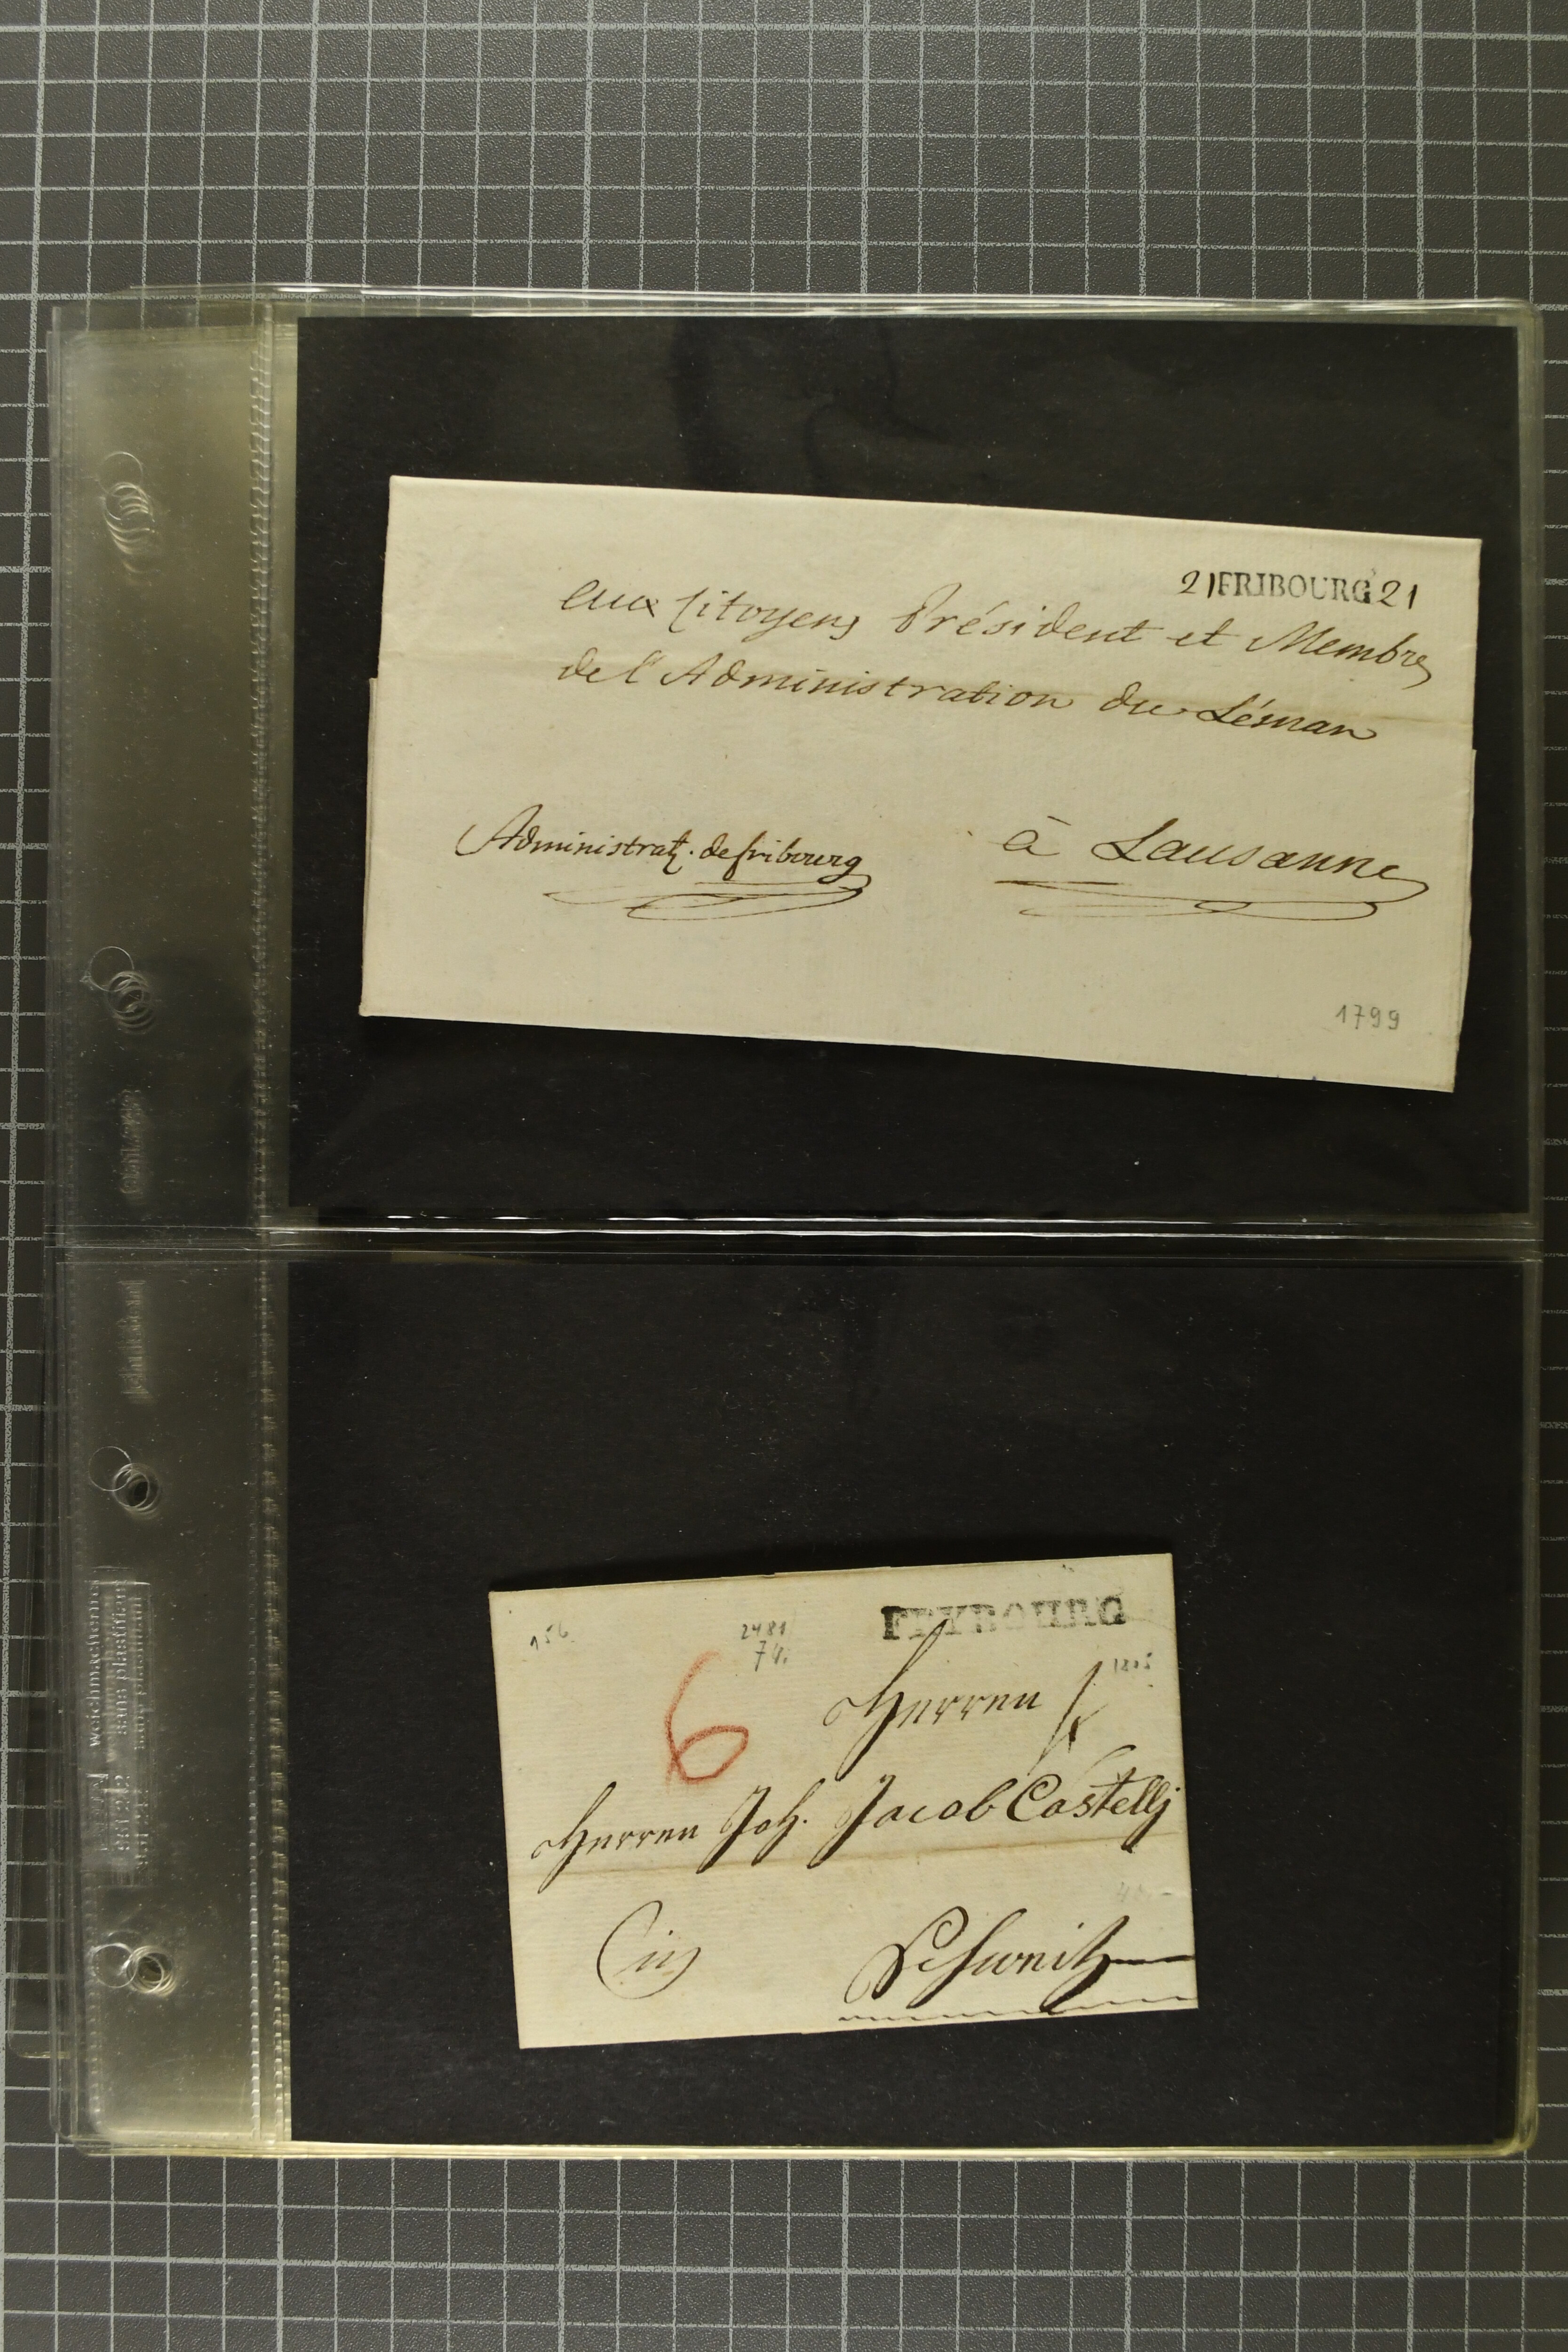 21 FRIBOURG 21
aux Citoyens Président et Membres
de l'Administration du Léman
Administrat. de fribourg
à Lausanne
1799
FRYBOURG
156
2481
74.
1805
6
Herren
Herren Joh. Jacob Castellj
in
Schweitz
weichmacherfrei
sans plastifiant